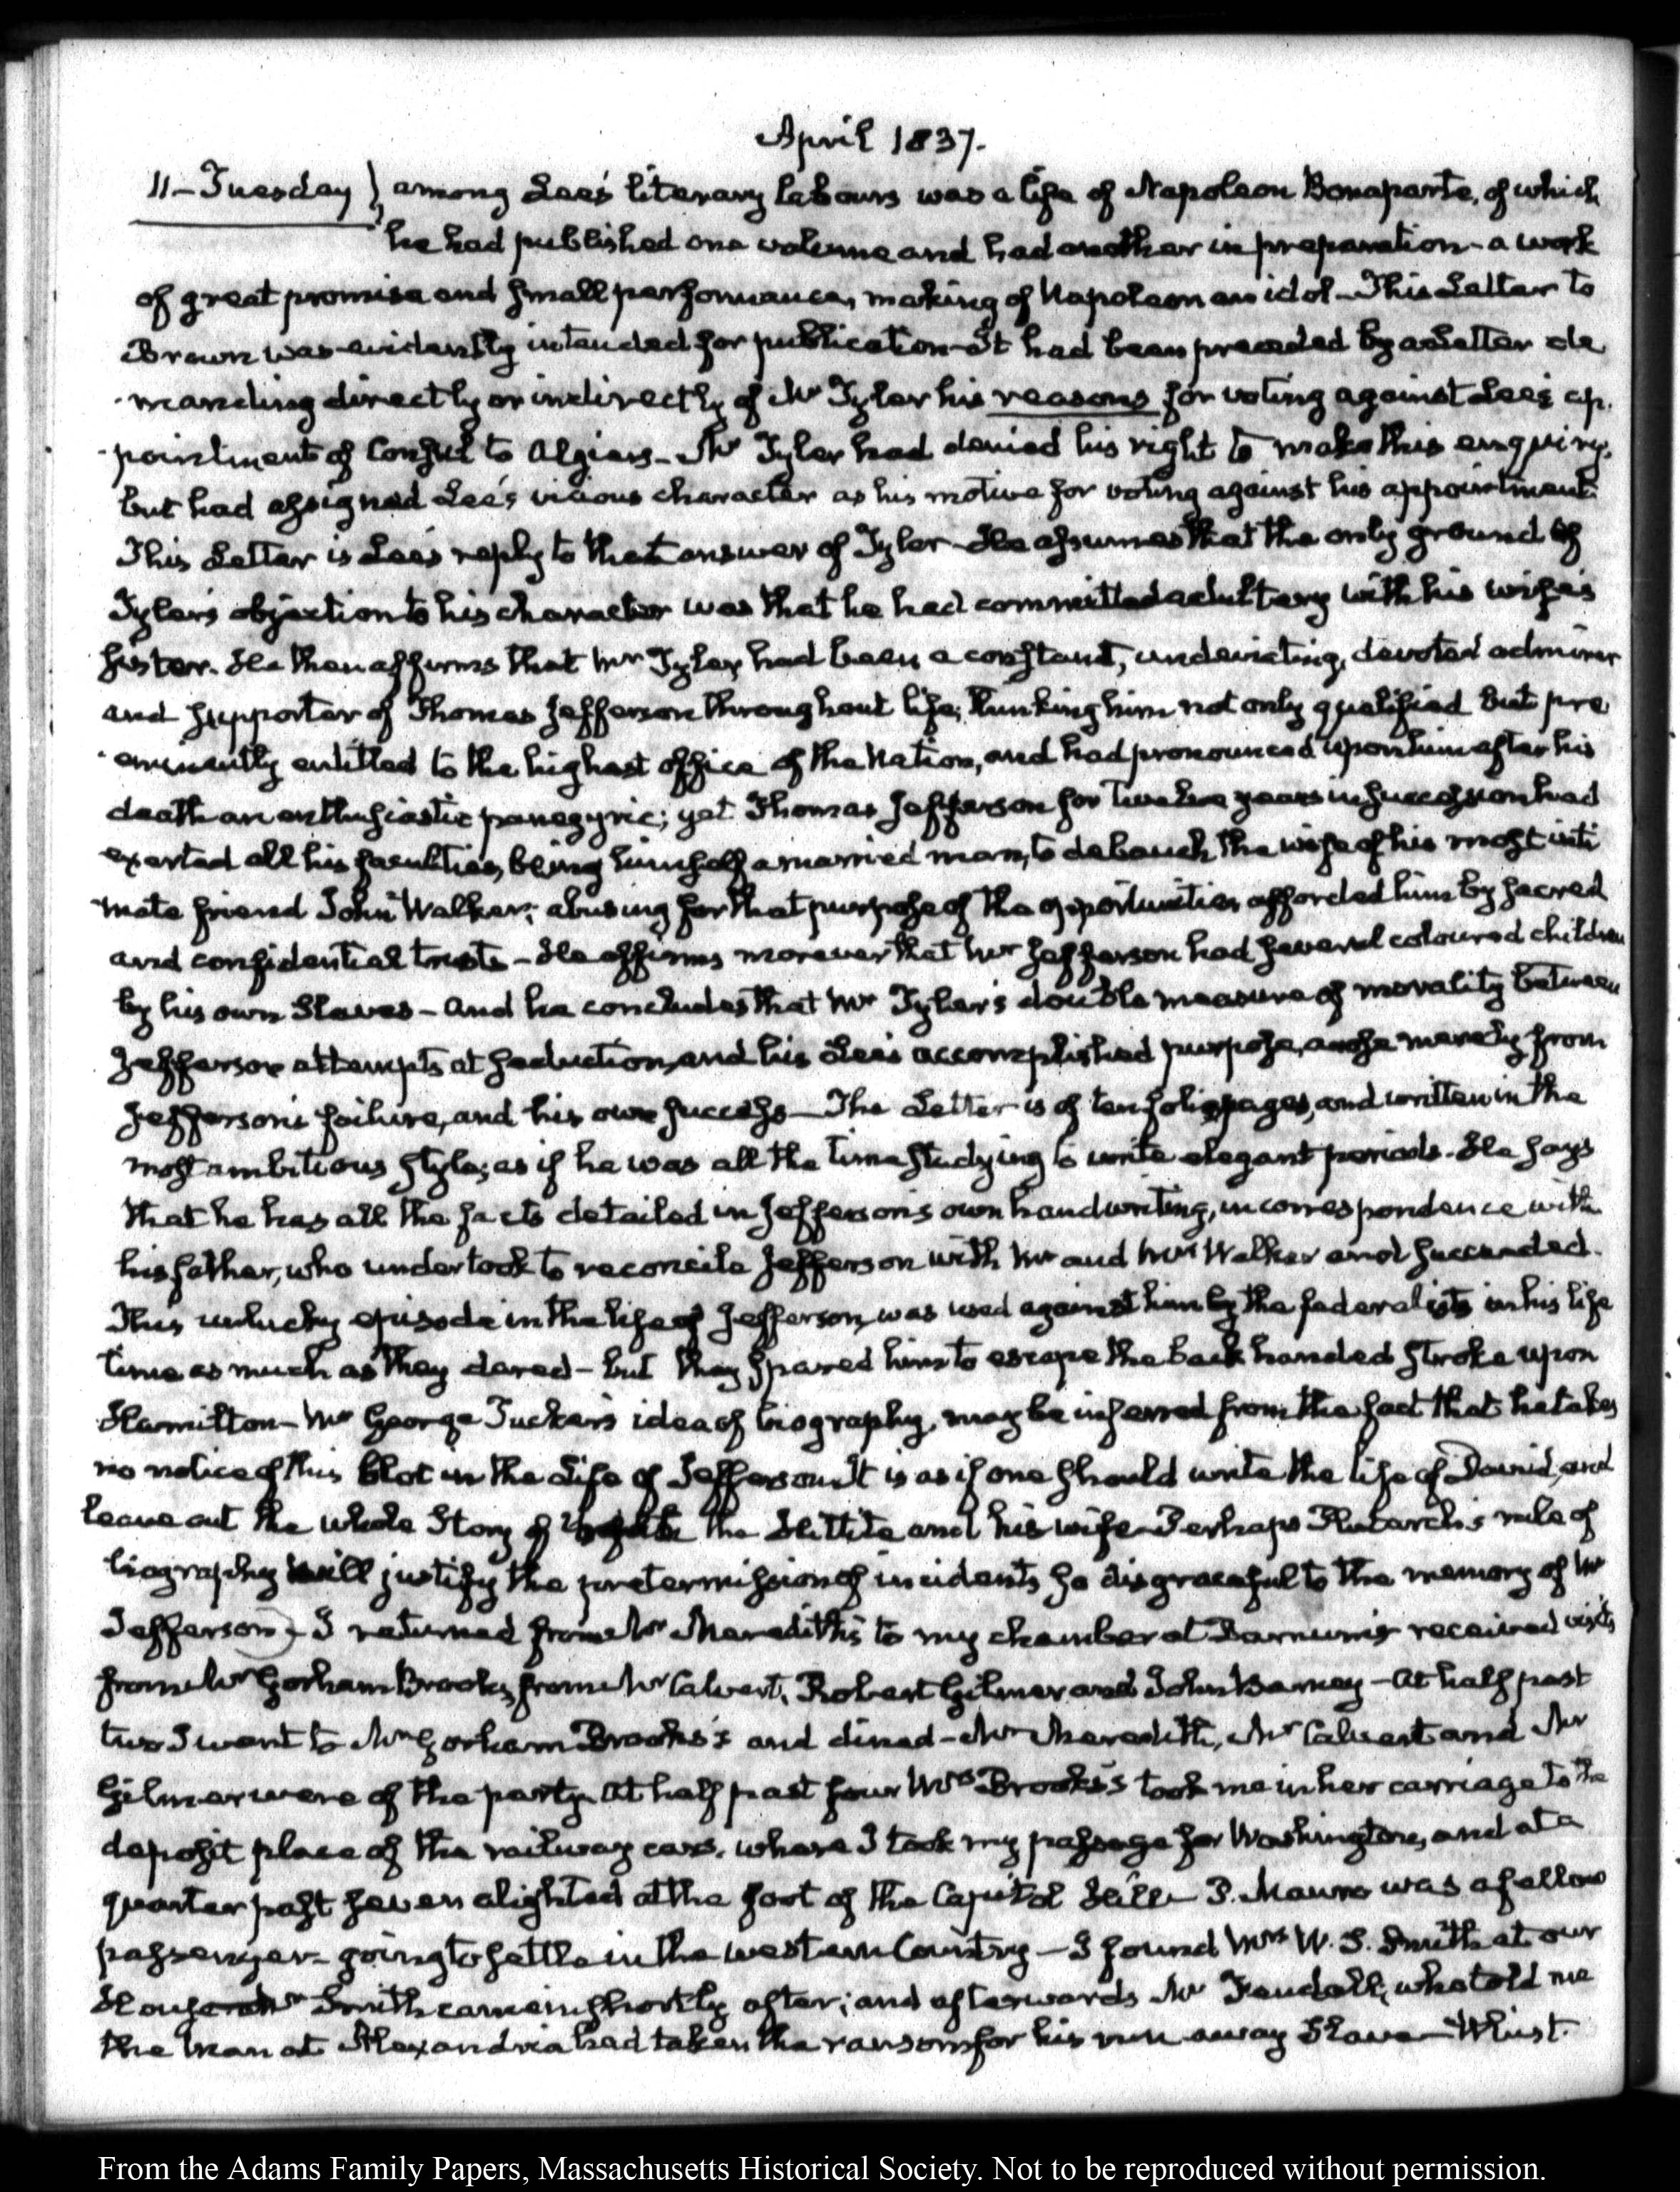 April 1837.
11 - Tuesday } among Lee's literary labours was a life of Napoleon Bonaparte, of which
he had published one volume and had another in preparation - a work
of great promise and small performance, making of Napoleon an idol - This Letter to
Brown was evidently intended for publication - It had been preceded by a Letter de
manding directly or indirectly of Mr Tyler his reasons for voting against Lee's ap.
pointment of Consul to Algiers - Mr Tyler had denied his right to make this enquiry,
but had assigned Lee's vicious character as his motive for voting against his appointment
This Letter is Lee's reply to that answer of Tyler - He assumes that the only ground of
Tyler's objection to his character was that he had committed adultery with his wife's
sister. He then affirms that Mr Tyler had been a constant, undeviating, devoted admirer
and supporter of Thomas Jefferson throughout life; thinking him not only qualified but pre
eminently entitled to the highest office of the Nation, and had pronounced upon him after his
death an enthusiastic panegyric; yet Thomas Jefferson for twelve years in succession had
exerted all his faculties, being himself a married man, to debauch the wife of his most inti
mate friend John Walker; abusing for that purpose of the opportunities afforded him by sacred
and confidential trusts - He affirms moreover that Mr Jefferson had several coloured children
by his own Slaves - and he concludes that Mr Tyler's double measure of morality between
Jefferson attempts at seduction, and his Lee's accomplished purpose, arose merely from
Jefferson's failure, and his own success - The Letter is of ten folio pages, and written in the
most ambitious style; as if he was all the time studying to write elegant periods. He says
that he has all the facts detailed in Jefferson's own handwriting, in correspondence with
his father, who undertook to reconcile Jefferson with Mr and Mrs Walker and succeeded.
This unlucky episode in the life of Jefferson, was used against him by the federalists in his life
time as much as they dared - but they spared him to escape the back handed stroke upon
Hamilton - Mr George Tucker's idea of biography, may be inferred from the fact that he takes
no notice of this blot in the Life of Jefferson. It is as if one should write the life of David, and
leave out the whole Story of the Hittite and his wife - Perhaps Plutarch's rule of
biography will justify the pretermission of incidents so disgraceful to the memory of Mr
Jefferson) - I returned from Mr Meredith's to my chamber at Barnum's received visits
from Mr Gorham Brooks, from Mr Calvert, Robert Gilmor and John Barney - At half past
two I went to Mr Gorham Brooks's and dined - Mr Meredith, Mr Calvert and Mr
Gilmor were of the party. At half past four Mrs Brooks's took me in her carriage to the
deposit place of the railway cars, where I took my passage for Washington, and at a
quarter past seven alighted at the foot of the Capitol Hill - P. Mauro was a fellow
passenger - going to settle in the western Country - I found Mrs W. S. Smith at our
House Mr Smith came in shortly after; and afterwards Mr Fendall, who told me
the man at Alexandria had taken the ransom for his run away Slave - Whist.
From the Adams Family Papers, Massachusetts Historical Society. Not to be reproduced without permission.